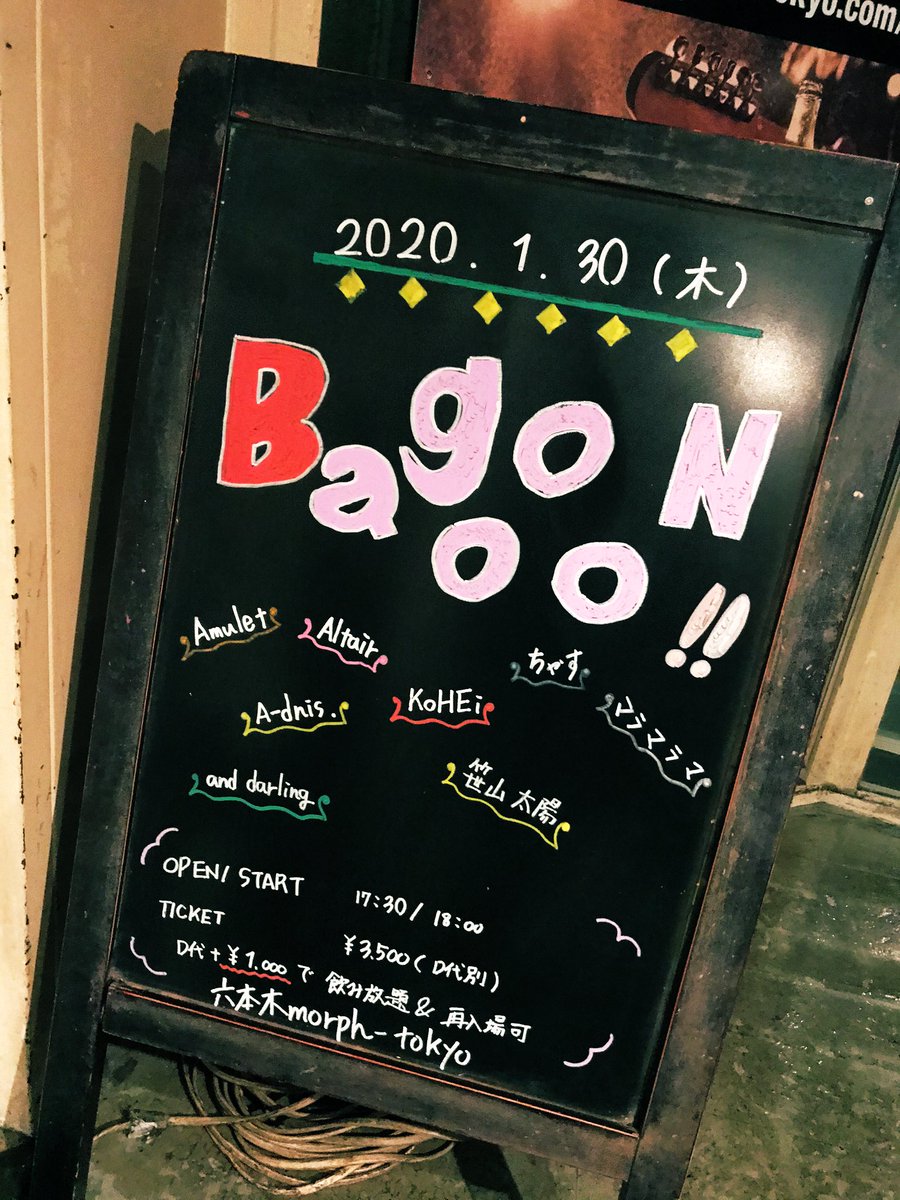 okyo.com/
2020.1.30(木)
BagooooN!!
Amulet
Altair
ちゃす
A-dnis.
KoHEi
マラマラマ
and darling
笹山太陽
OPEN/START 17:30/18:00
TICKET ¥3,500(D代別)
D代+¥1,000で飲み放題&再入場可
六本木morph-tokyo